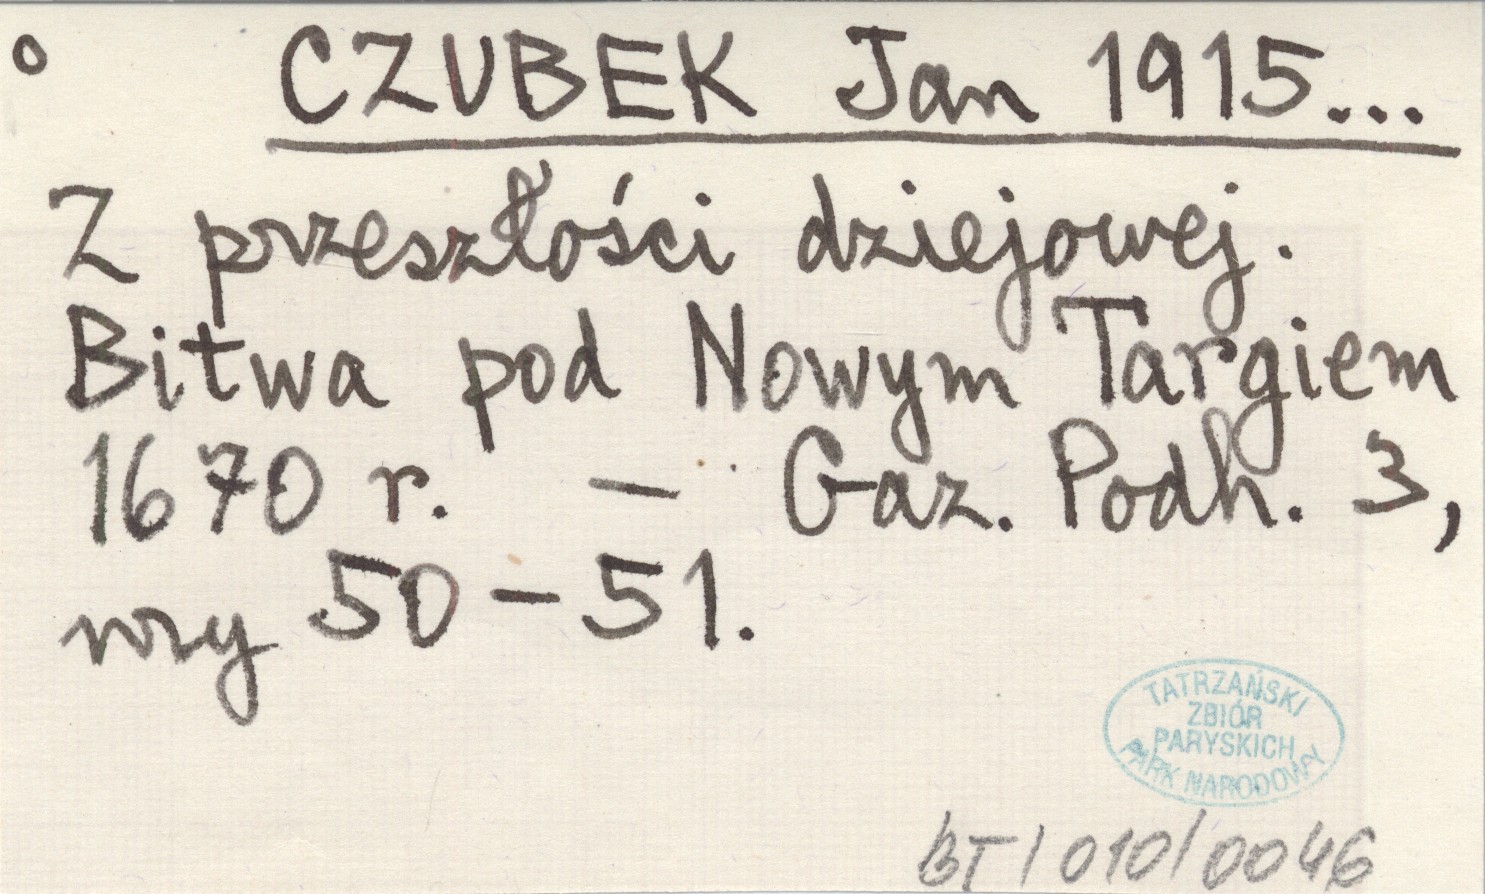 o CZUBEK Jan 1915...
Z przeszłości dziejowej.
Bitwa pod Nowym Targiem
1670 r. — Gaz. Podh. 3,
nry 50-51.
TATRZAŃSKI
ZBIÓR
PARYSKICH
PARK NARODOWY
BT/010/0046